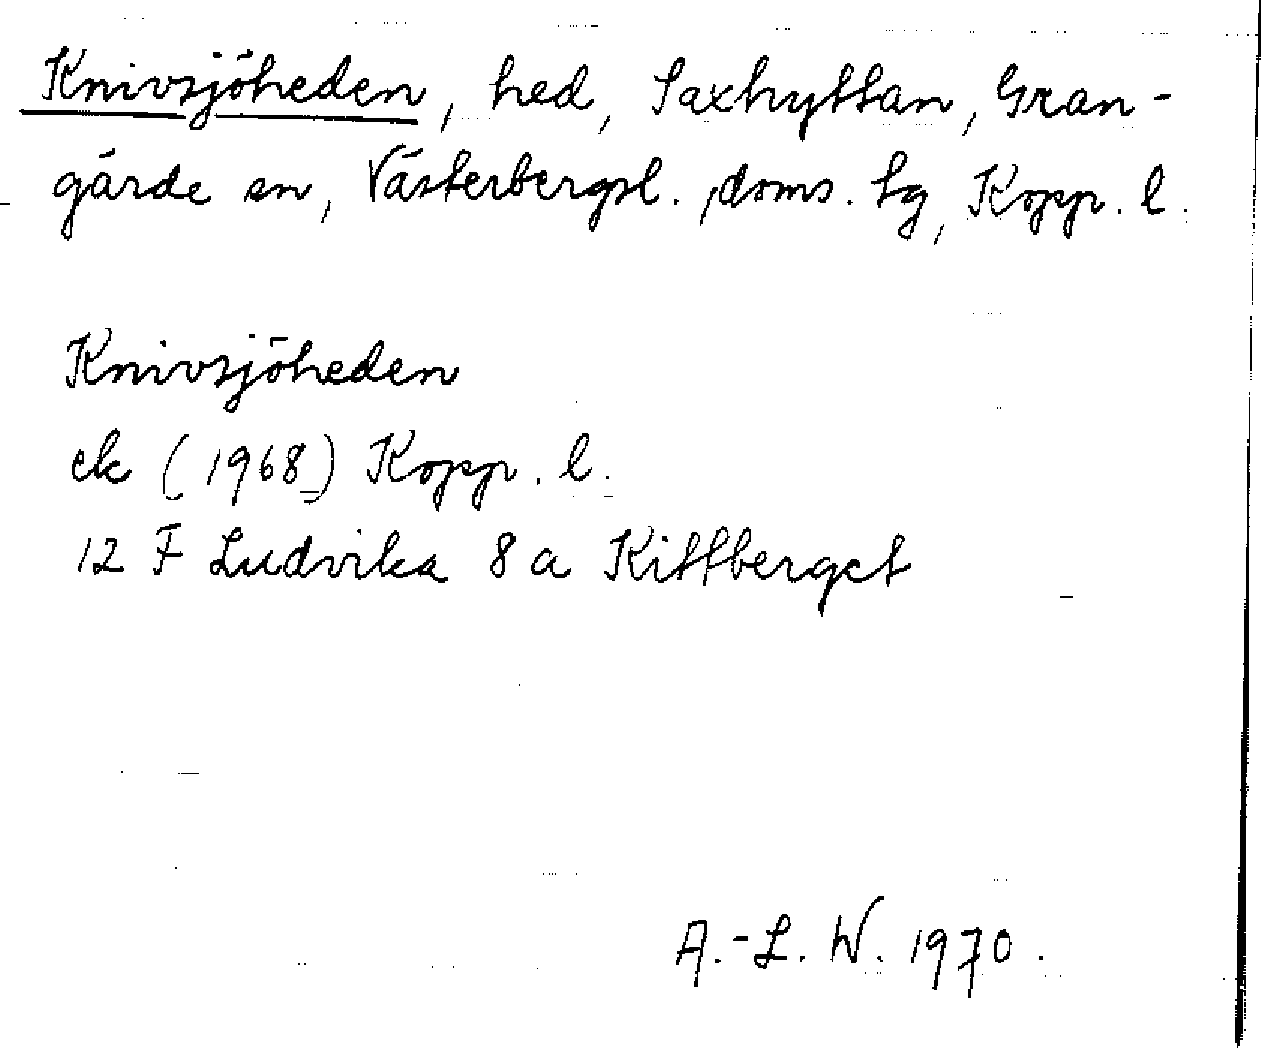 Knivsjöheden, hed, Saxhyttan, Gran-
gärde sn, Västerbergsl. doms. tg, Kopp. l.
Knivsjöheden
ek (1968) Kopp. l.
12 F Ludvika 8 a Kittberget
A.-L. W. 1970.